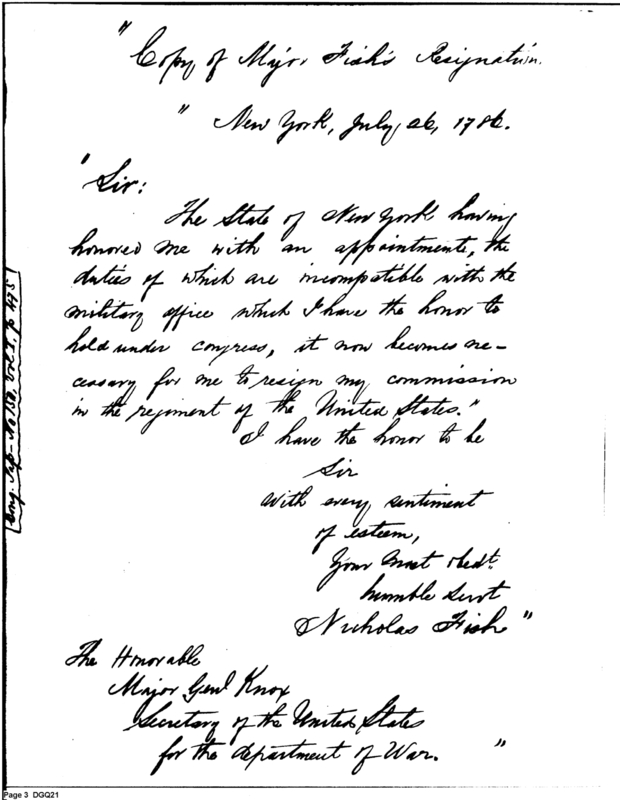 "Copy of Major Fish's Resignation.
"New York, July 26, 1786.
"Sir:
The State of New York having
honored me with an appointment, the
duties of which are incompatible with the
military office which I have the honor to
hold under congress, it now becomes ne-
cessary for me to resign my commission
in the regiment of the United States."
I have the honor to be
Sir
With every sentiment
of esteem,
Your most obedt.
humble Servt
Nicholas Fish"
The Honorable
Major Genl Knox
Secretary of the United States
for the department of War. "
Cong. Pap- No 150, Vol. I, p. 475
Page 3 DGQ21